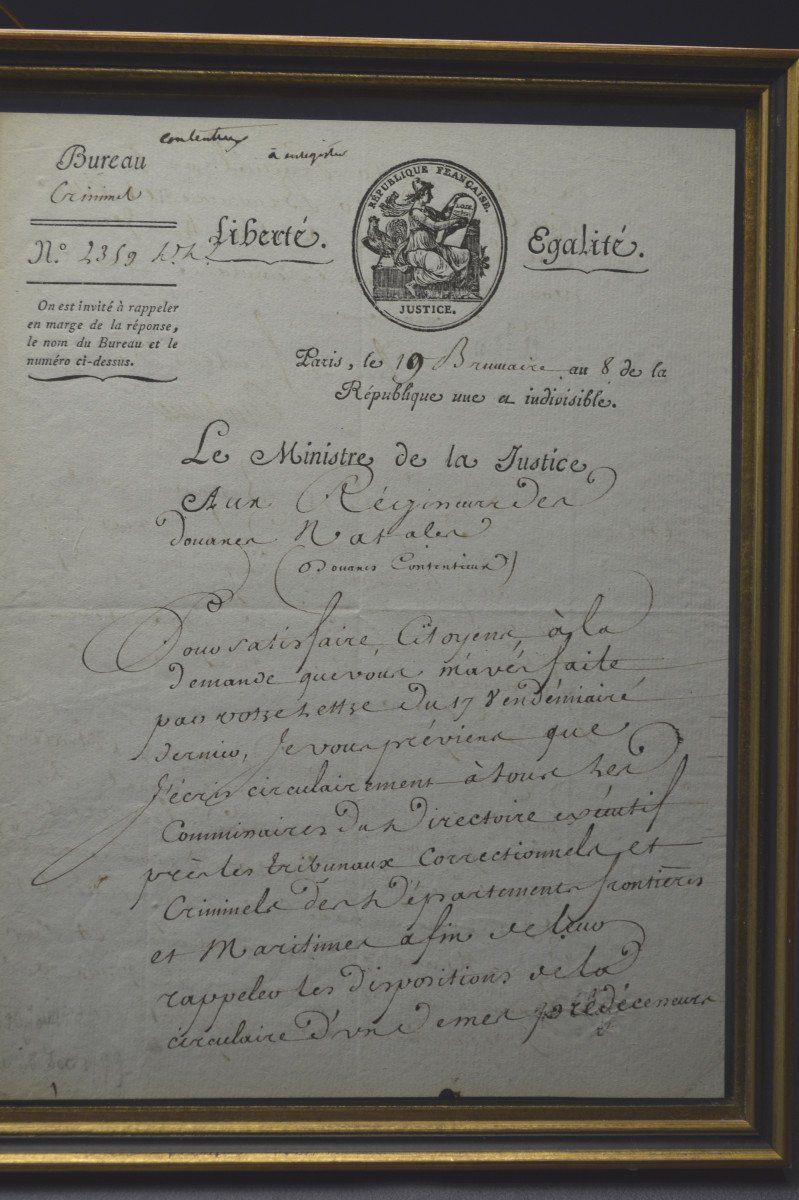 contentieux
à enregistrer
Bureau
Criminel
N.º 2359
Liberté.
RÉPUBLIQUE FRANÇAISE.
JUSTICE.
Egalité.
On est invité à rappeler
en marge de la réponse,
le nom du Bureau et le
numéro ci-dessus.
Paris, le 19 Brumaire an 8 de la
République une et indivisible.
Le Ministre de la Justice
Aux Régisseurs des
Douanes Nat.ales
(Douanes Contentieux)
Pour satisfaire, Citoyens, à la
demande que vous m'avés faite
par votre Lettre du 17 Vendémiaire
dernier, Je vous préviens que
J'écris circulairement à tous Les
Commissaires du Directoire exécutif
près les tribunaux Correctionnels et
Criminels des Départements frontières
et Maritimes afin de leur
rappeler les dispositions de la
circulaire d'un de mes prédécesseurs